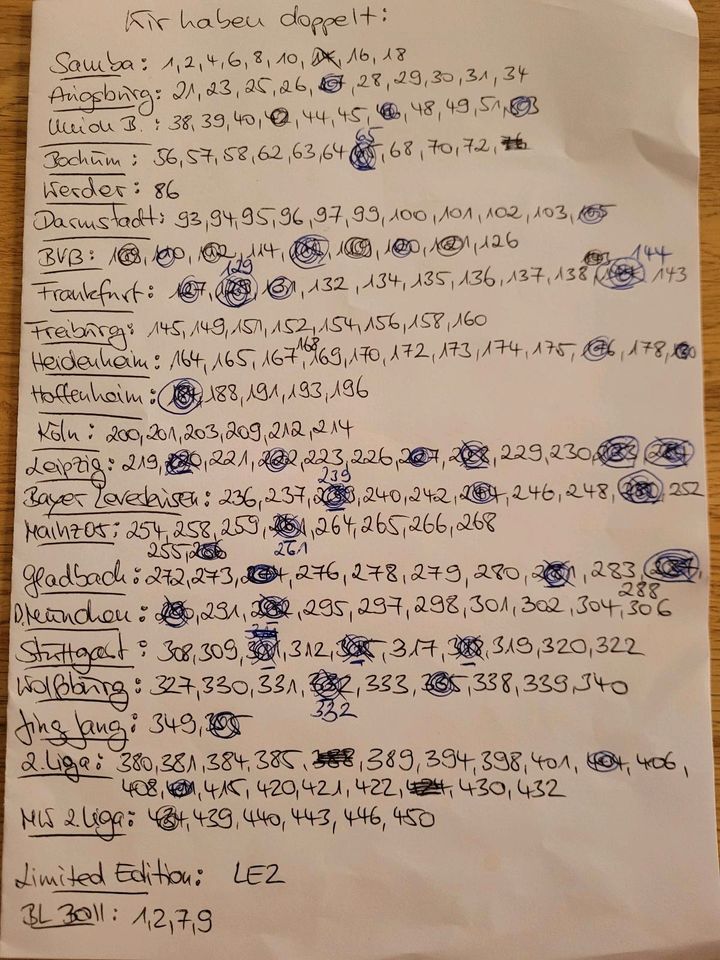 Wir haben doppelt:
Samba: 1, 2, 4, 6, 8, 10, 16, 18
Augsburg: 21, 23, 25, 26, 28, 29, 30, 31, 34
Union B.: 38, 39, 40, 44, 45, 48, 49, 51
65
Bochum: 56, 57, 58, 62, 63, 64, 68, 70, 72,
Werder: 86
Darmstadt: 93, 94, 95, 96, 97, 99, 100, 101, 102, 103, 105
BVB: 109, 110, 112, 114, 119, 120, 121, 126
129 144
Frankfurt: 127, 131, 132, 134, 135, 136, 137, 138, 143
Freiburg: 145, 149, 151, 152, 154, 156, 158, 160
168
Heidenheim: 164, 165, 167, 169, 170, 172, 173, 174, 175, 176, 178, 180
Hoffenheim: 184, 188, 191, 193, 196
Köln: 200, 201, 203, 209, 212, 214
Leipzig: 219, 221, 222, 223, 226, 227, 228, 229, 230,
239
Bayer Leverkusen: 236, 237, 240, 242, 244, 246, 248, 252
Mainz05: 254, 258, 259, 264, 265, 266, 268
255, 261
Gladbach: 272, 273, 274, 276, 278, 279, 280, 281, 283,
288
B.München: 291, 292, 295, 297, 298, 301, 302, 304, 306
Stuttgart: 308, 309, 312, 317, 318, 319, 320, 322
Wolfsburg: 327, 330, 331, 333, 335, 338, 339, 340
332
Jing Jang: 349,
2. Liga: 380, 381, 384, 385, 388, 389, 394, 398, 401, 404, 406,
408, 415, 420, 421, 422, 424, 430, 432
MW 2.Liga: 434, 439, 440, 443, 446, 450
Limited Edition: LE2
BL Ball: 1, 2, 7, 9